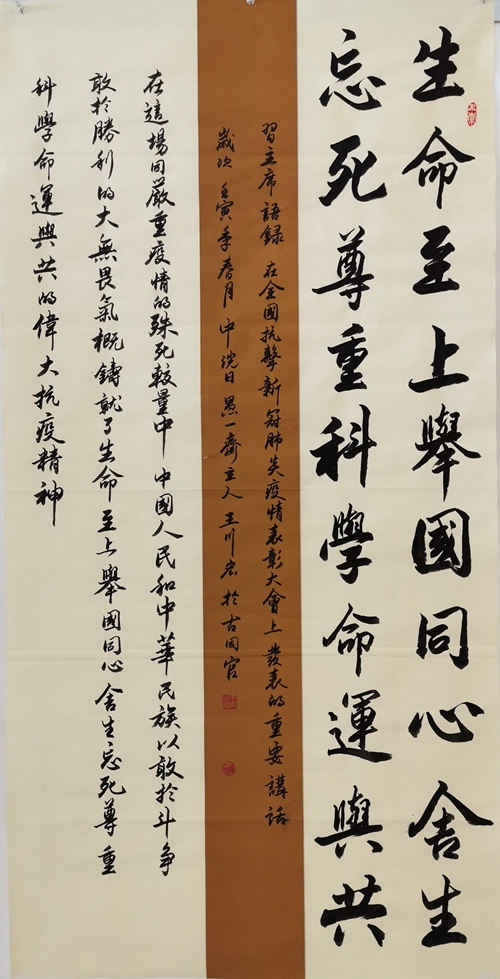 生命至上舉國同心舍生
忘死尊重科學命運與共
習主席語録 在全國抗擊新冠肺炎疫情表彰大會上發表的重要講話
歲次壬寅季春月中浣日愚一齋主人王川宏於古同官
在這場同嚴重疫情的殊死較量中 中國人民和中華民族以敢於斗争
敢於勝利的大無畏氣概鑄就了生命至上舉國同心舍生忘死尊重
科學命運與共的偉大抗疫精神